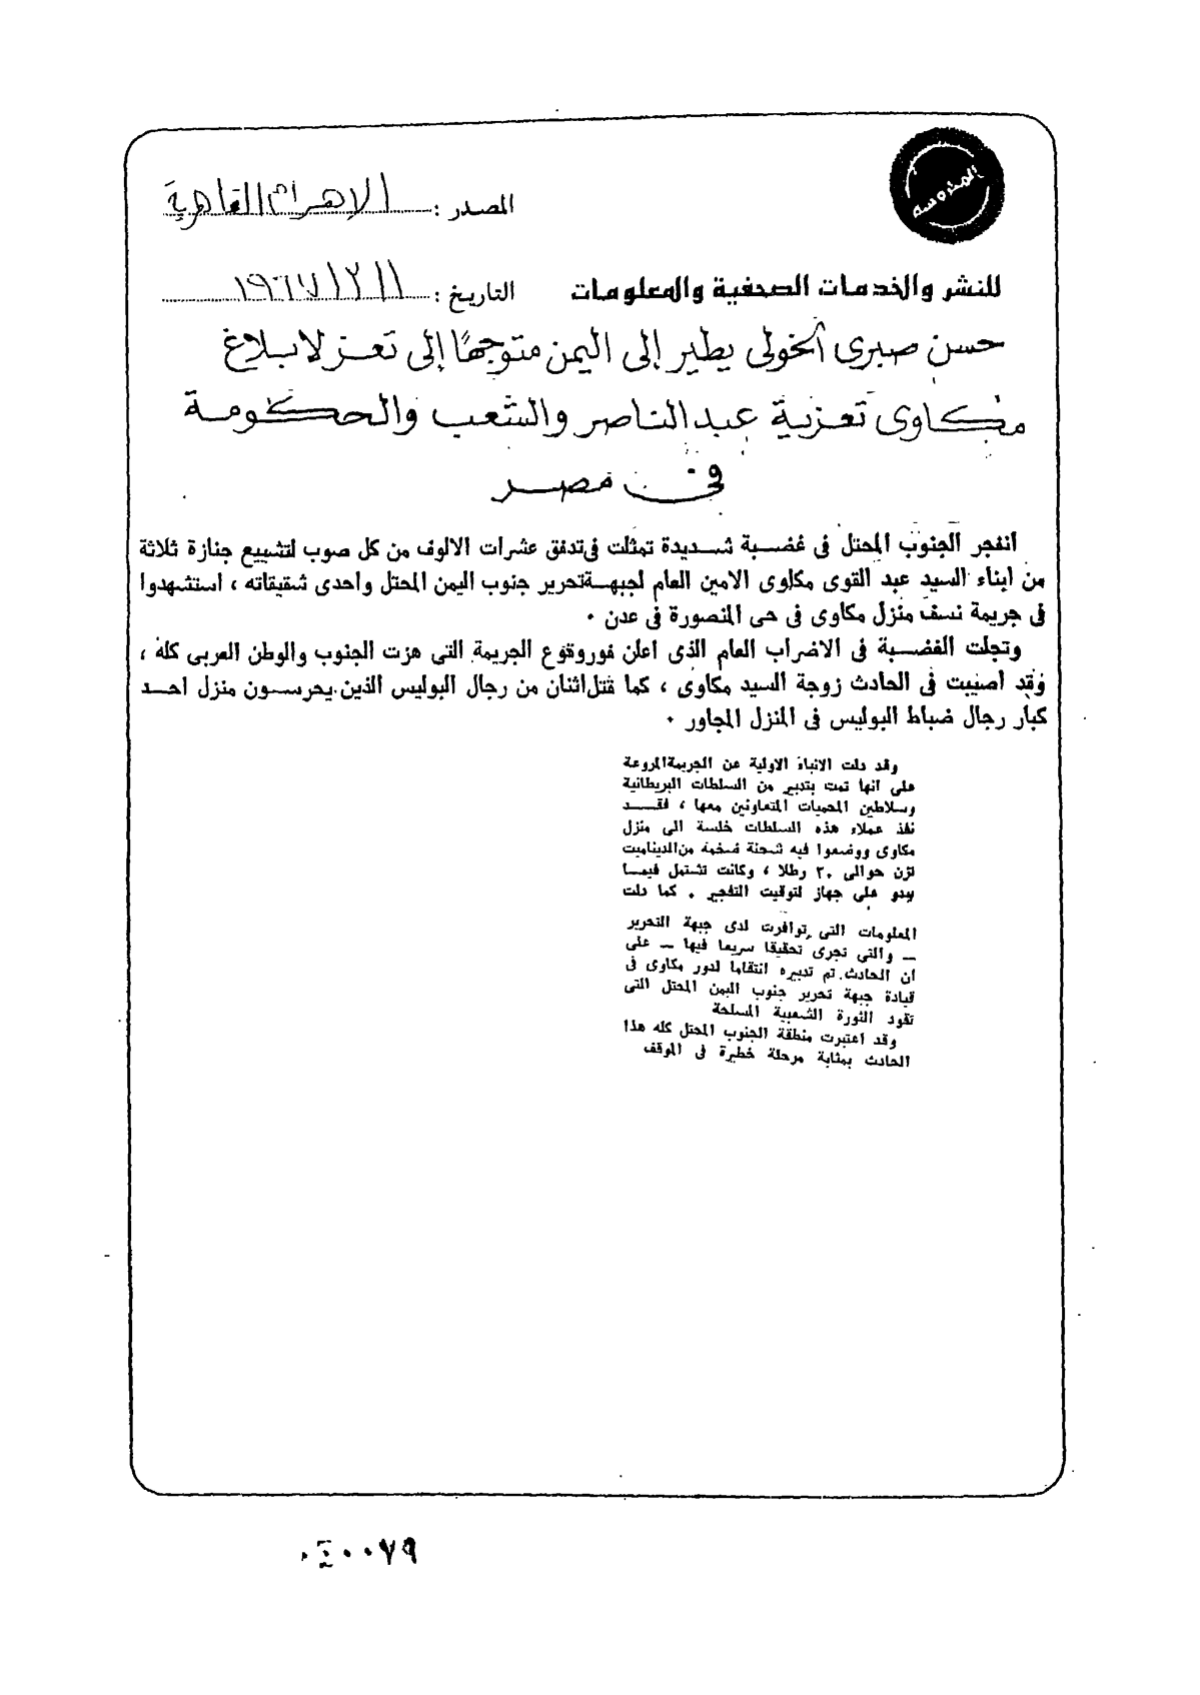 المحروسة
المصدر : الاهرام القاهرية
للنشر والخدمات الصحفية والمعلومات
التاريخ : ١٩٦٧/٣/١
حسن صبرى الخولى يطير إلى اليمن متوجهًا إلى تعز لابلاغ
مكاوى تعزية عبد الناصر والشعب والحكومة
فى مصر
انفجر الجنوب المحتل فى غضبة شديدة تمثلت فى تدفق عشرات الالوف من كل صوب لتشييع جنازة ثلاثة
من ابناء السيد عبد القوى مكاوى الامين العام لجبهة تحرير جنوب اليمن المحتل واحدى شقيقاته ، استشهدوا
فى جريمة نسف منزل مكاوى فى حى المنصورة فى عدن .
وتجلت الغضبة فى الاضراب العام الذى اعلن فور وقوع الجريمة التى هزت الجنوب والوطن العربى كله ،
وقد اصيبت فى الحادث زوجة السيد مكاوى ، كما قتل اثنان من رجال البوليس الذين يحرسون منزل احد
كبار رجال ضباط البوليس فى المنزل المجاور .
وقد دلت الانباء الاولية عن الجريمة المروعة
على انها تمت بتدبير من السلطات البريطانية
وسلاطين المحميات المتعاونين معها ، فقد
نفذ عملاء هذه السلطات خلسة الى منزل
مكاوى ووضعوا فيه شحنة ضخمة من الديناميت
تزن حوالى ٣٠ رطلا ، وكانت تشتمل فيما
يبدو على جهاز لتوقيت التفجير . كما دلت
المعلومات التى توافرت لدى جبهة التحرير
ــ والتى تجرى تحقيقا سريعا فيها ــ على
ان الحادث تم تدبيره انتقاما لدور مكاوى فى
قيادة جبهة تحرير جنوب اليمن المحتل التى
تقود الثورة الشعبية المسلحة
وقد اعتبرت منطقة الجنوب المحتل كله هذا
الحادث بمثابة مرحلة خطيرة فى الموقف
٠٤٠٠٧٩